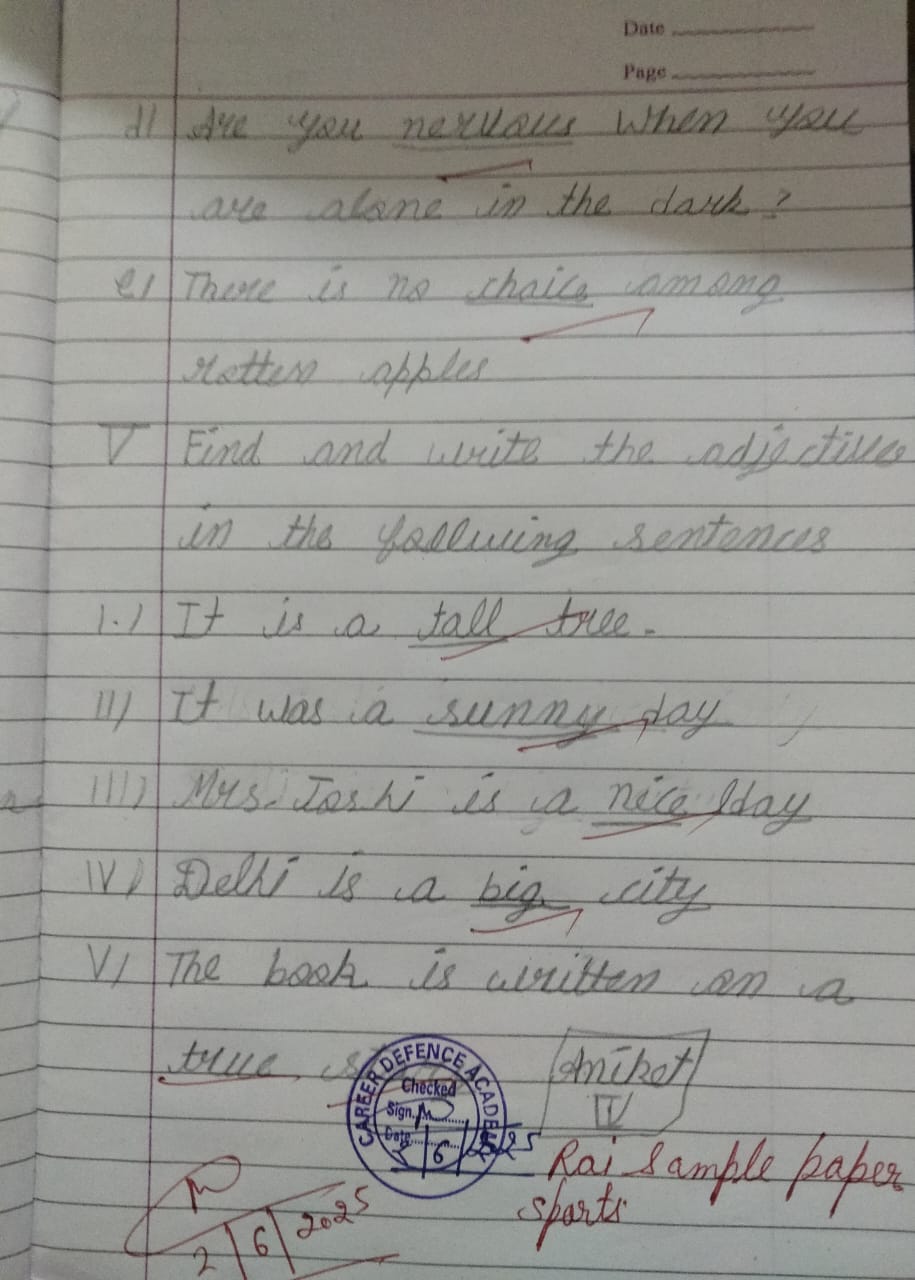 Date
Page
d) Are you nervous when you
are alone in the dark?
e) There is no choice among
rotten apples
V Find and write the adjective
in the follwing sentences
I.) It is a tall tree.
II) It was a sunny day
III) Mrs. Joshi is a nice lday
IV) Delhi is a big city
V) The book is written on a
true
CAREER DEFENCE ACADEMY
Checked
Sign.
Date 2/6/2025
Aniket
IV
Rai Sample paper
sports
2/6/2025